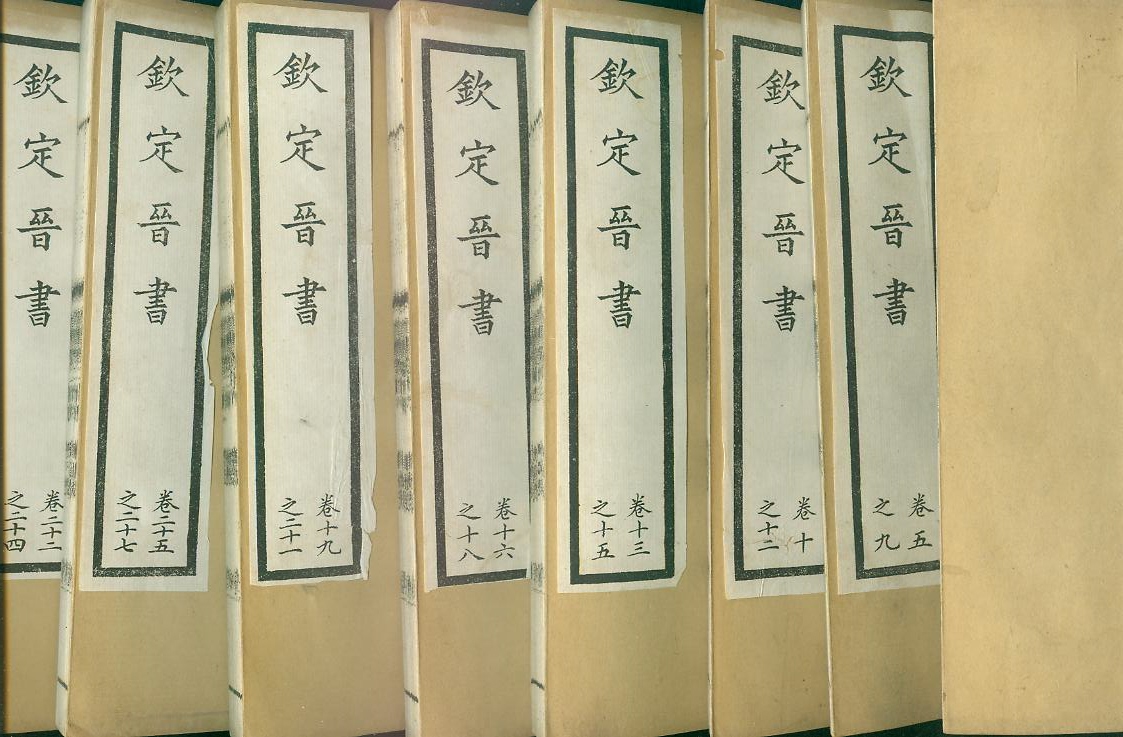 欽定晉書
卷五
之九
欽定晉書
卷十
之十二
欽定晉書
卷十三
之十五
欽定晉書
卷十六
之十八
欽定晉書
卷十九
之二十一
欽定晉書
卷二十五
之二十七
欽定晉書
卷二十二
之二十四